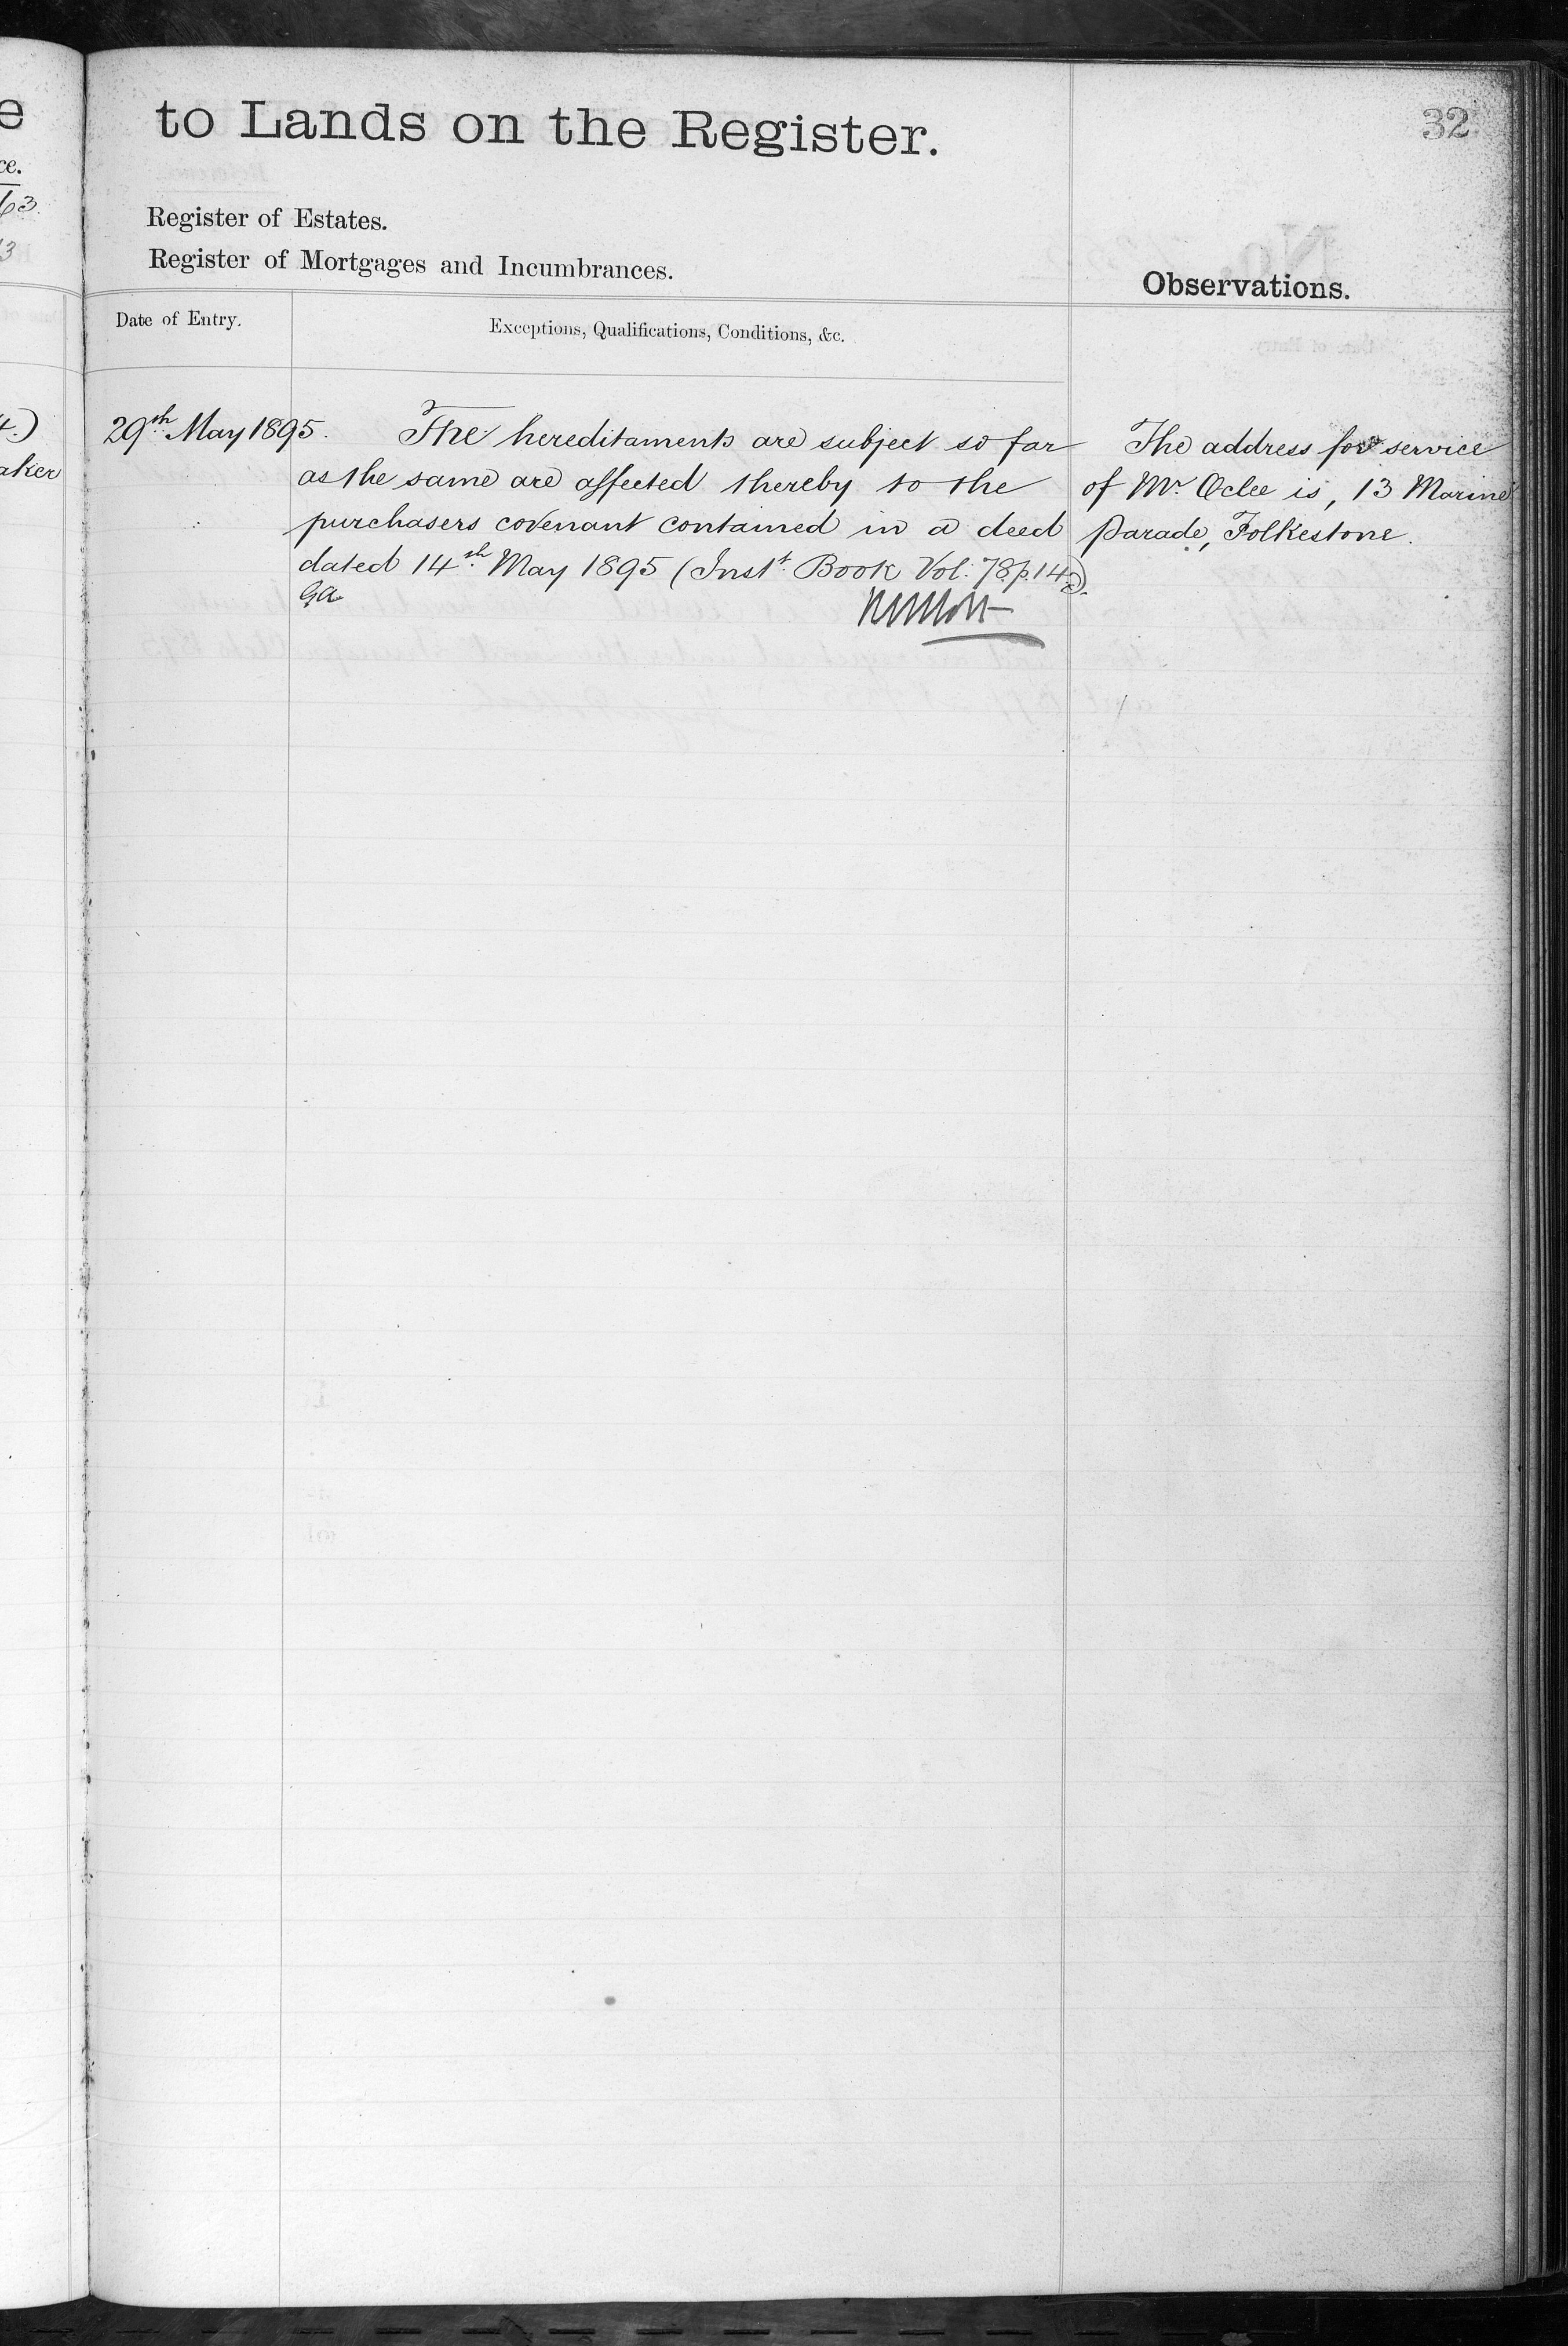 e
ce.
63.
3
4.)
aker
to Lands on the Register.
32
Register of Estates.
Register of Mortgages and Incumbrances.
Observations.
Date of Entry.
Exceptions, Qualifications, Conditions, &c.
29th May 1895.
The hereditaments are subject so far
as the same are affected thereby to the
purchasers covenant contained in a deed
dated 14th May 1895 (Inst. Book Vol: 78 p. 14.)
GA
The address for service
of Mr. Oclee is, 13 Marine
Parade, Folkestone.